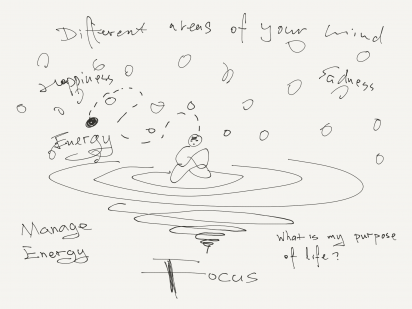 Different areas of your mind
Happiness
Sadness
Energy
Manage
Energy
What is my purpose
of life?
Focus